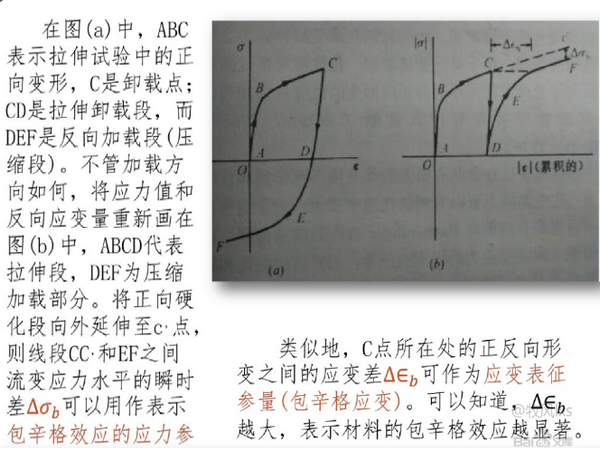 在图(a)中，ABC
表示拉伸试验中的正
向变形，C是卸载点；
CD是拉伸卸载段，而
DEF是反向加载段(压
缩段)。不管加载方
向如何，将应力值和
反向应变量重新画在
图(b)中，ABCD代表
拉伸段，DEF为压缩
加载部分。将正向硬
化段向外延伸至c'点，
则线段CC'和EF之间
流变应力水平的瞬时
差Δσb可以用作表示
包辛格效应的应力参
σ
C
B
A
D
O
ε
E
F
(a)
|σ|
Δεb
c'
Δσb
C
F
B
E
A
O
D
|ε|(累积的)
(b)
类似地，C点所在处的正反向形
变之间的应变差Δ∈b可作为应变表征
参量(包辛格应变)。可以知道，Δ∈b
越大，表示材料的包辛格效应越显著。